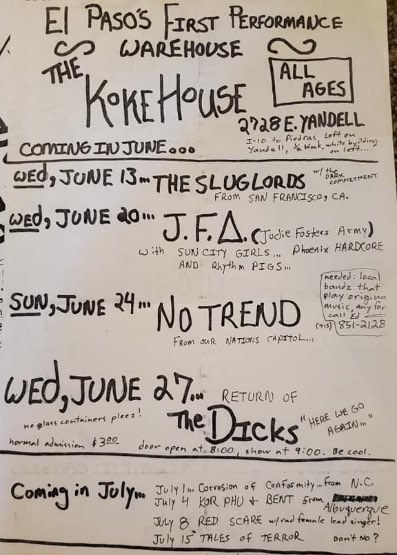 El PASO'S FIRST PERFORMANCE
WAREHOUSE
THE
KOKE HOUSE
ALL
AGES
2728 E. YANDELL
I-10 to Piedras, Left on
Yandell, ½ block, white building
on left...
COMING IN JUNE...
wed, JUNE 13... THE SLUGLORDS w/ the DARK COMMITMENT
FROM SAN FRANCISCO, CA.
wed, JUNE 20... J.F.A. (Jodie Fosters Army)
with SUN CITY GIRLS... Phoenix HARDCORE
AND Rhythm PIGS...
needed: local
bandz that
play original
music, any for
call Ed
(915) 851-2128
SUN, JUNE 24... NO TREND
FROM OUR NATIONS CAPITOL...
WED, JUNE 27... RETURN OF
The DICKS "HERE WE GO
AGAIN..."
no glass containers pleez!
normal admission $3.00 door open at 8:00, show at 9:00. Be cool.
Coming in July... July 1... Corrosion of Conformity... from N.C.
July 4 KOR PHU & BENT from Albuquerque
July 8 RED SCARE w/ rad female lead singer!
July 15 TALES of TERROR Don't No?